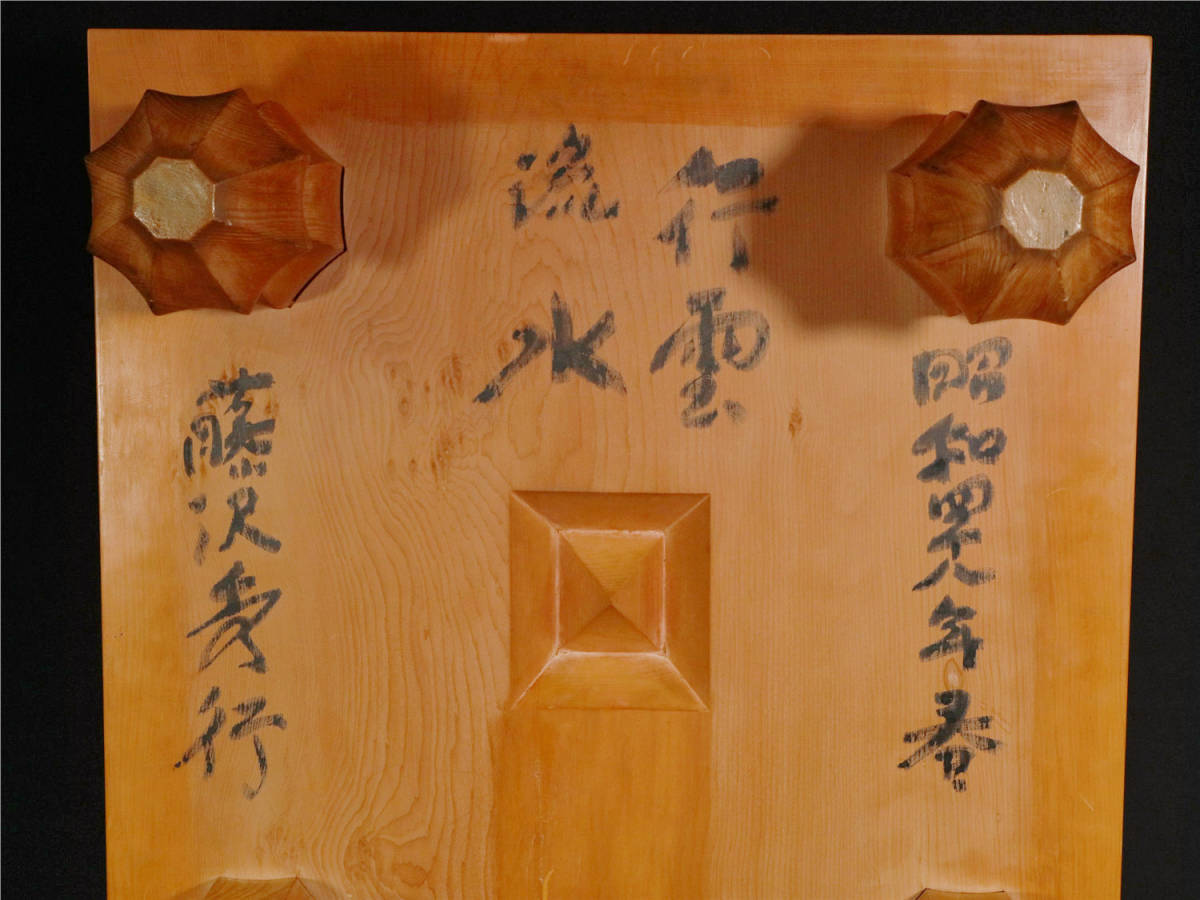 昭和四十八年春
行雲
流水
藤沢秀行